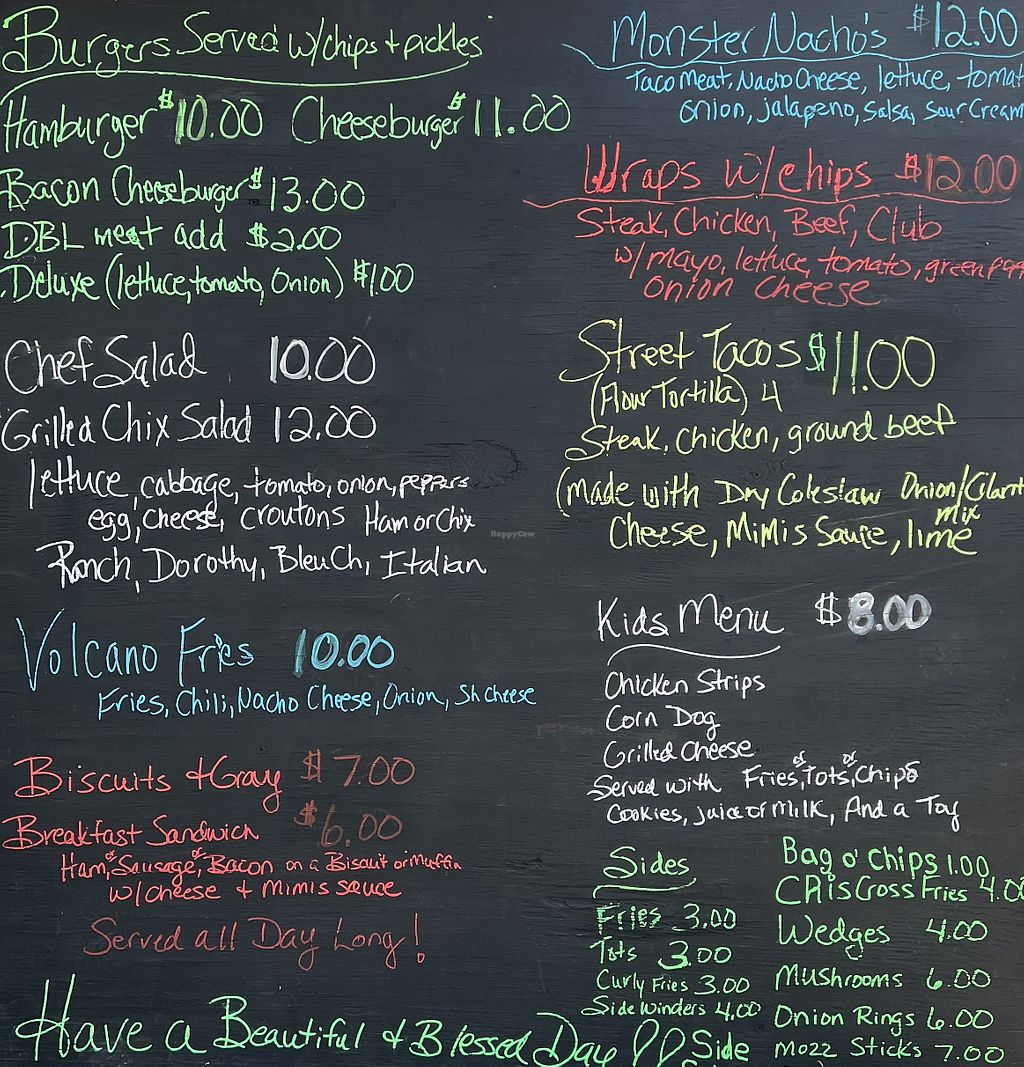 Burgers Served w/chips + pickles
Hamburger $10.00 Cheeseburger $11.00
Bacon Cheeseburger $13.00
DBL meat add $2.00
Deluxe (lettuce, tomato, Onion) $1.00
Chef Salad 10.00
Grilled Chix Salad 12.00
lettuce, cabbage, tomato, onion, peppers
egg, cheese, croutons Ham or Chix
Ranch, Dorothy, BleuCh, Italian
Volcano Fries 10.00
Fries, Chili, Nacho Cheese, Onion, Sh cheese
Biscuits + Gravy $7.00
Breakfast Sandwich $6.00
Ham, or Sausage, or Bacon on a Biscuit or Muffin
w/cheese + Mimis sauce
Served all Day Long!
Have a Beautiful & Blessed Day
Monster Nacho's $12.00
Taco Meat, Nacho Cheese, lettuce, tomat
onion, jalapeno, Salsa, Sour Cream
Wraps w/chips $12.00
Steak, Chicken, Beef, Club
w/mayo, lettuce, tomato, green
Onion Cheese
Street Tacos $11.00
(Flour Tortilla) 4
Steak, Chicken, ground beef
(made with Dry Coleslaw Onion/Cilant
mix
Cheese, Mimis Sauce, lime
Kids Menu $8.00
Chicken Strips
Corn Dog
Grilled Cheese
Served with Fries, or Tots, or Chips
Cookies, juice or Milk, And a Toy
Sides
Fries 3.00
Tots 3.00
Curly Fries 3.00
Side Winders 4.00
Side
Bag o' Chips 1.00
CRisCross Fries 4.00
Wedges 4.00
Mushrooms 6.00
Onion Rings 6.00
Mozz Sticks 7.00
HappyCow